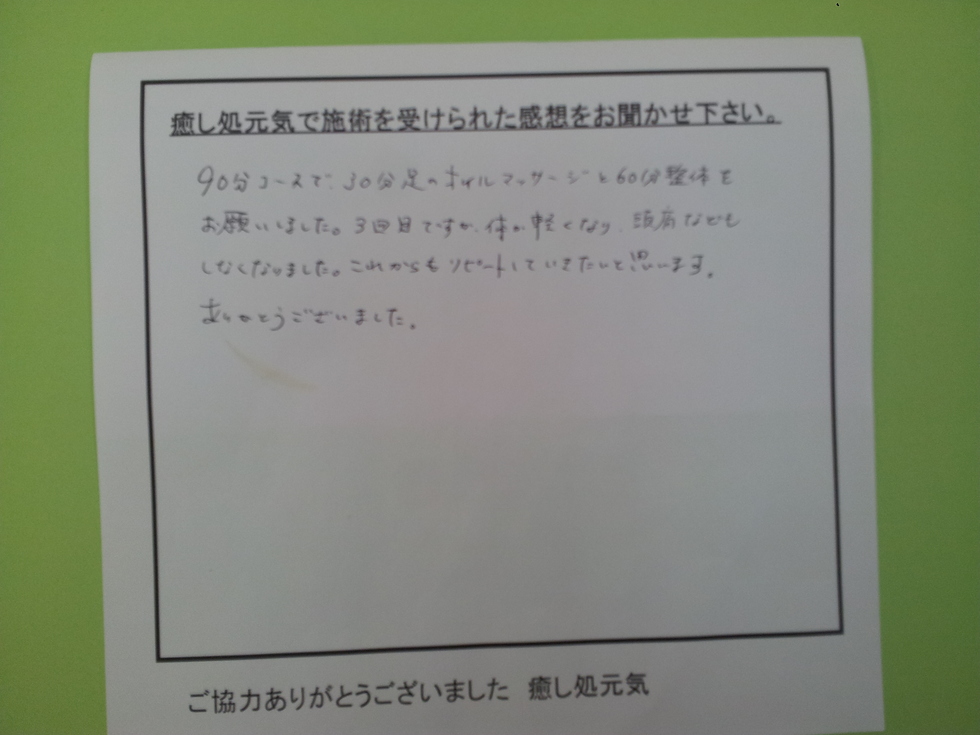 癒し処元気で施術を受けられた感想をお聞かせ下さい。
90分コースで、30分足のオイルマッサージと60分整体を
お願いしました。3回目ですが、体が軽くなり、頭痛なども
しなくなりました。これからもリピートしていきたいと思います。
ありがとうございました。
ご協力ありがとうございました 癒し処元気